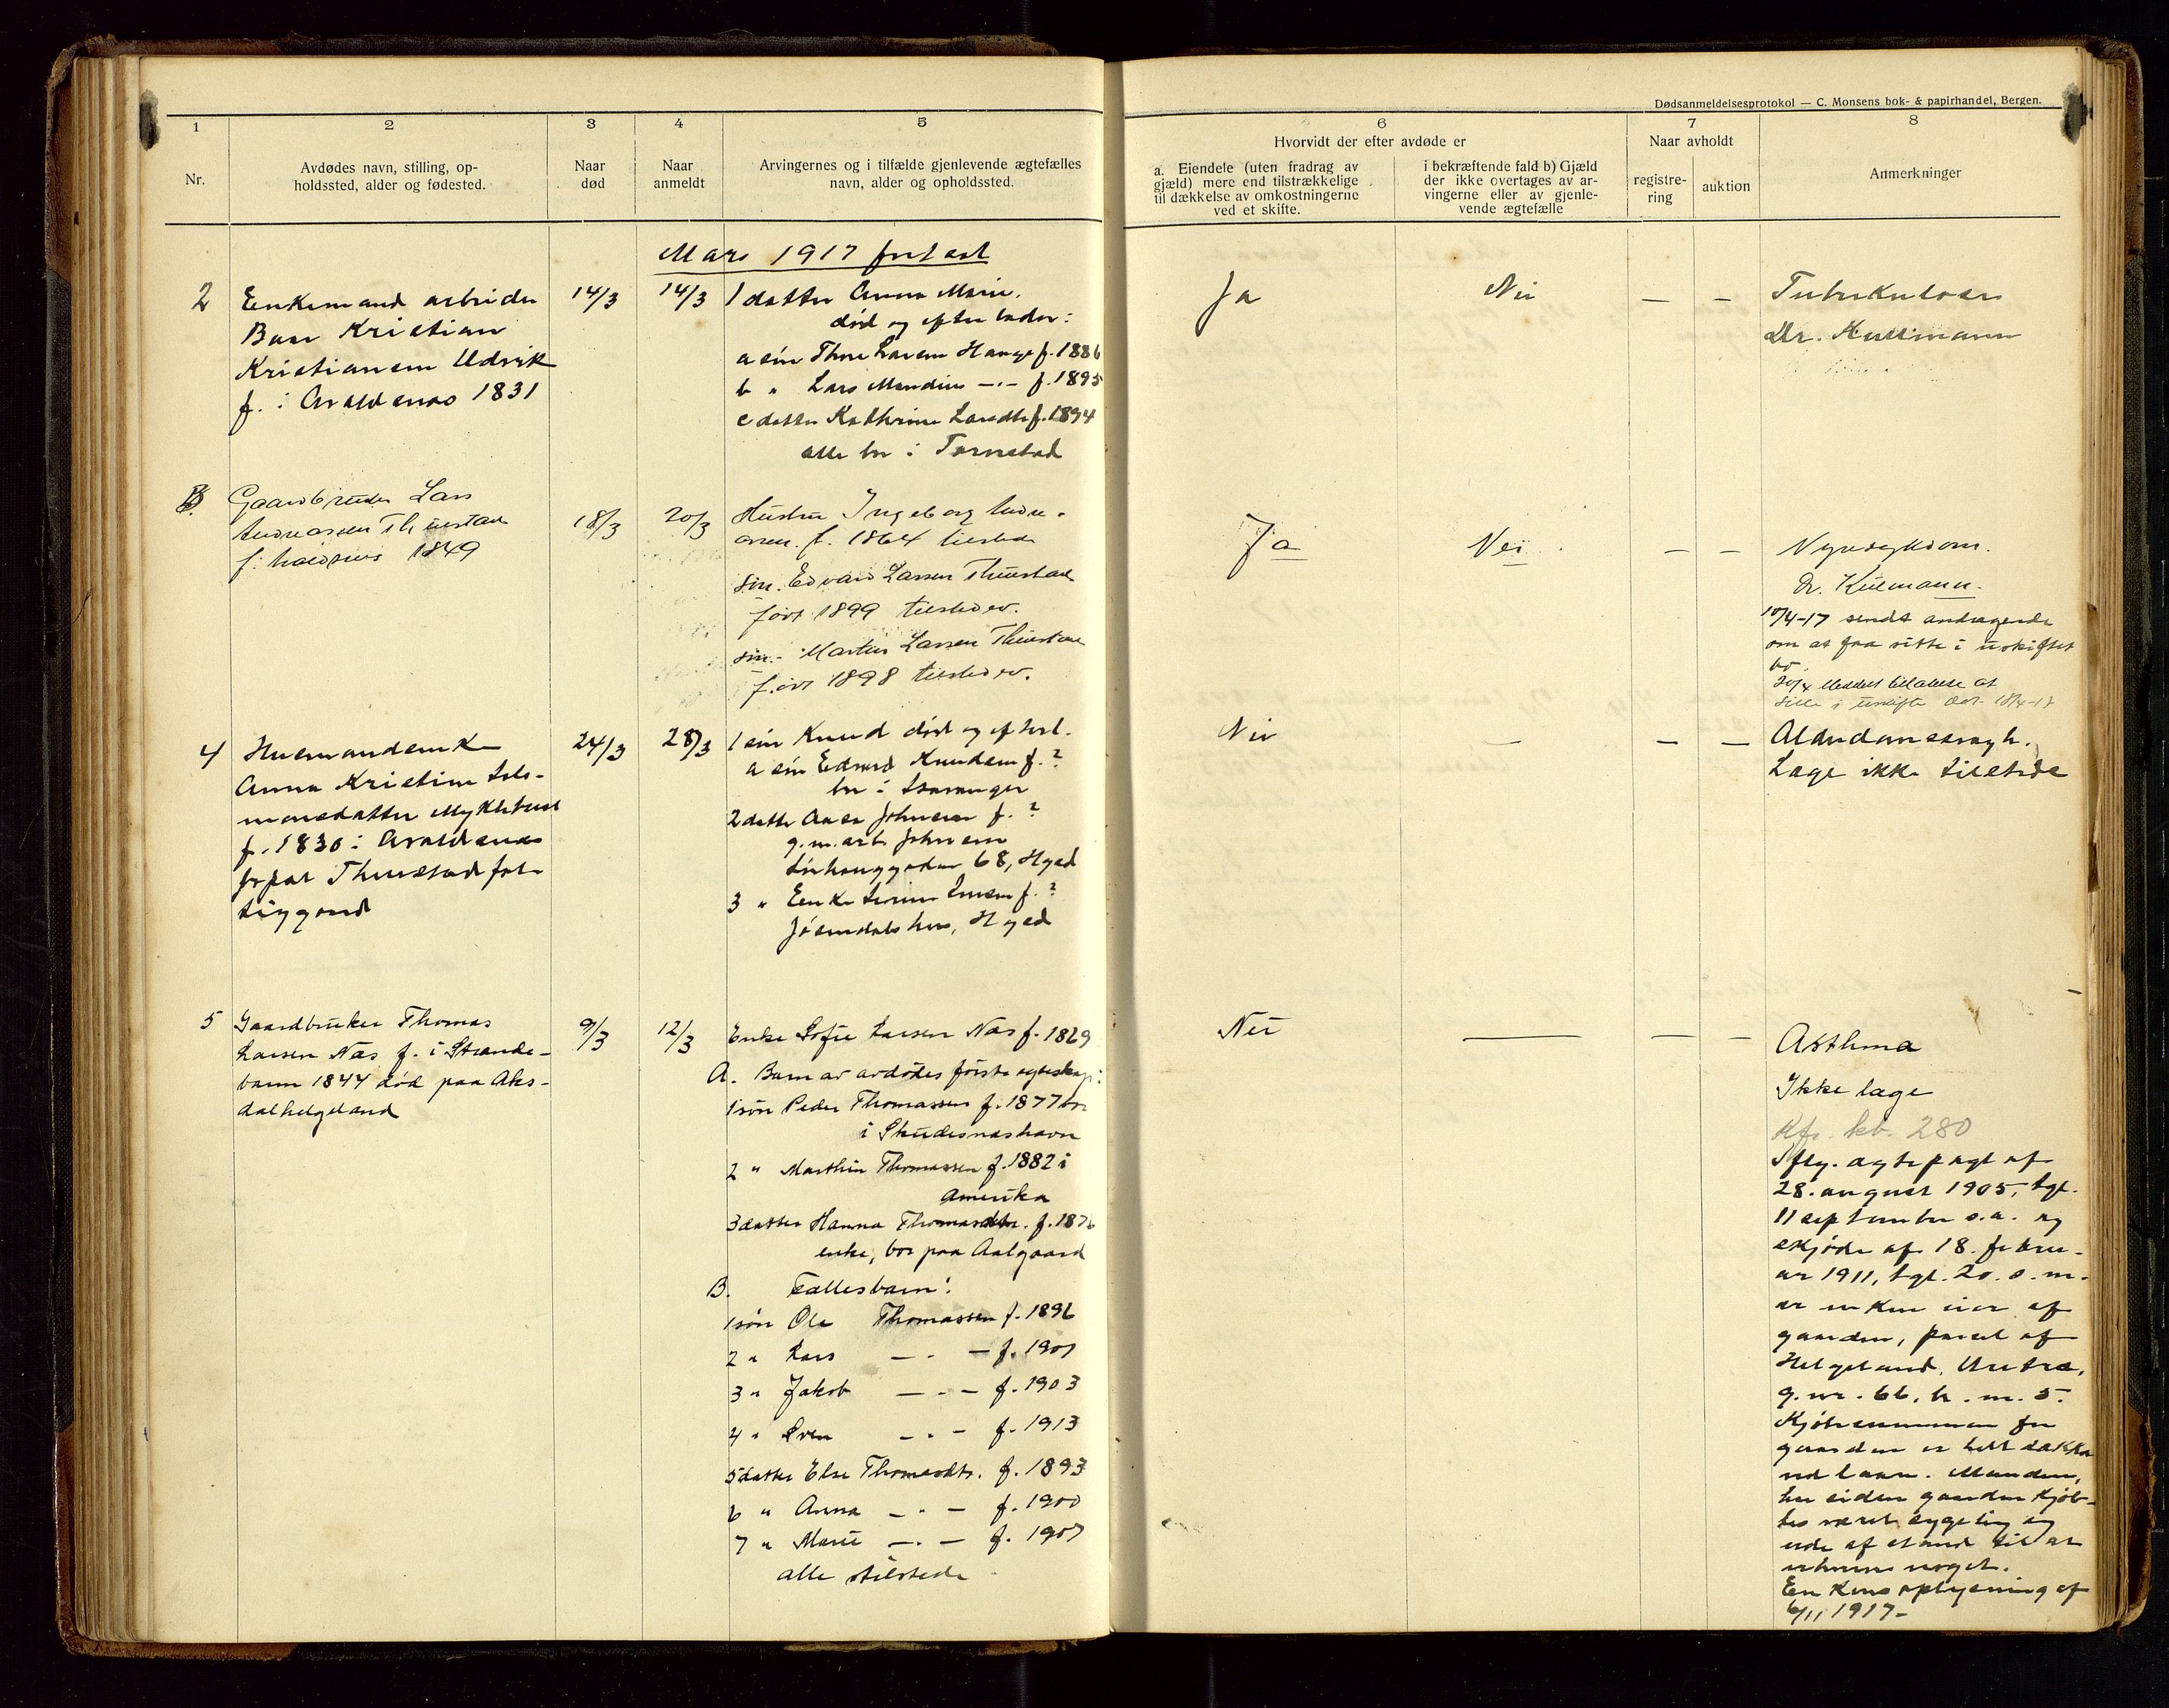 Dødsanmeldelsesprotokol — C. Monsens bok- & papirhandel, Bergen.
1
2
3
4
5
6
7
8
Nr.
Avdødes navn, stilling, op-
holdssted, alder og fødested.
Naar
død
Naar
anmeldt
Arvingernes og i tilfælde gjenlevende ægtefælles
navn, alder og opholdssted.
Hvorvidt der efter avdøde er
a. Eiendele (uten fradrag av
gjæld) mere end tilstrækkelige
til dækkelse av omkostningerne
ved et skifte.
i bekræftende fald b) Gjæld
der ikke overtages av ar-
vingerne eller av gjenle-
vende ægtefælle
Naar avholdt
registre-
ring
auktion
Anmerkninger
Mars 1917 fortsat
2
Enkemand arbeider
Kristian
Kristiansen Udvik
f. i Avaldsnes 1831
14/3
14/3
1 datter Anna Marie,
død og efterlader:
a søn Thore Larsen Hauge f. 1886
b " Lars Mandius —"— f. 1895
c datter Kathrine Larsdtr f. 1894
alle bor i Tornstad
Ja
Nei
— —
Tuberkulose
Dr. Kullmann
3.
Gaardbruker Lars
Andreassen
f. 1849
18/3
20/3
Hustru Ingeborg Andre-
assen f. 1864 tilstede
søn. Edvard Larsen
født 1899 tilstede.
søn. Martin Larsen
født 1898 tilstede.
Ja
Nei
— —
Nyresykdom.
Dr. Kulmann.
10/4-17 sendt andragende
om at faa sitte i uskiftet
bo.
20/4 Meddelt tilladelse at
sitte i uskifte dat. 18/4-17
4
Husmandsenke
Anna Kristine Salo-
monsdatter Myklebust
f. 1830 i Avaldsnes
fattiggaard
24/3
28/3
1 søn Knud død og efterl.
a søn Edvard Knudsen f. ?
bor i Stavanger
2 datter Johnsen f. ?
g. m. arb. Johnsen
68, Hgsd
3 " Enke f. ?
Hgsd
Nei
—
— —
Alderdomssvagh.
Læge ikke tilstede
5
Gaardbruker Thomas
Larsen Næs f. i Strande-
barm 1844 død paa Aks-
dalhelgeland
9/3
12/3
Enke Sofie Larsen Næs f. 1869
A. Barn av avdødes første egteskap:
1 søn Peder Thomassen f. 1877 bor
i Skudesneshavn
2 " Marthin Thomassen f. 1882 i
Amerika
3 datter Hanna Thomasdtr. f. 1876
enke, bor paa Aalgaard
B. Fællesbarn:
1 søn Ole Thomassen f. 1896
2 " Lars —"— f. 1901
3 " Jakob —"— f. 1903
4 " Sven —"— f. 1913
5 datter Else Thomasdtr. f. 1893
6 " Anna —"— f. 1900
7 " Marie —"— f. 1907
alle tilstede
Nei
—
— —
Asthma
Ikke læge
Kfr. kb. 280
Ifølg. ægtepagt af
28. august 1905, tgl.
11 september s.a. og
skjøde af 18. febru-
ar 1911, tgl. 20. s.m.
er enken eier af
gaarden, parsel af
Helgeland,
g.nr. 66, b.nr. 5.
Kjøbesummen for
gaarden er helt dækket
ved laan. Manden,
har siden gaarden kjøb-
tes været sygelig og
ude af stand til at
erhverve noget.
Enkens oplysning af
6/11 1917.